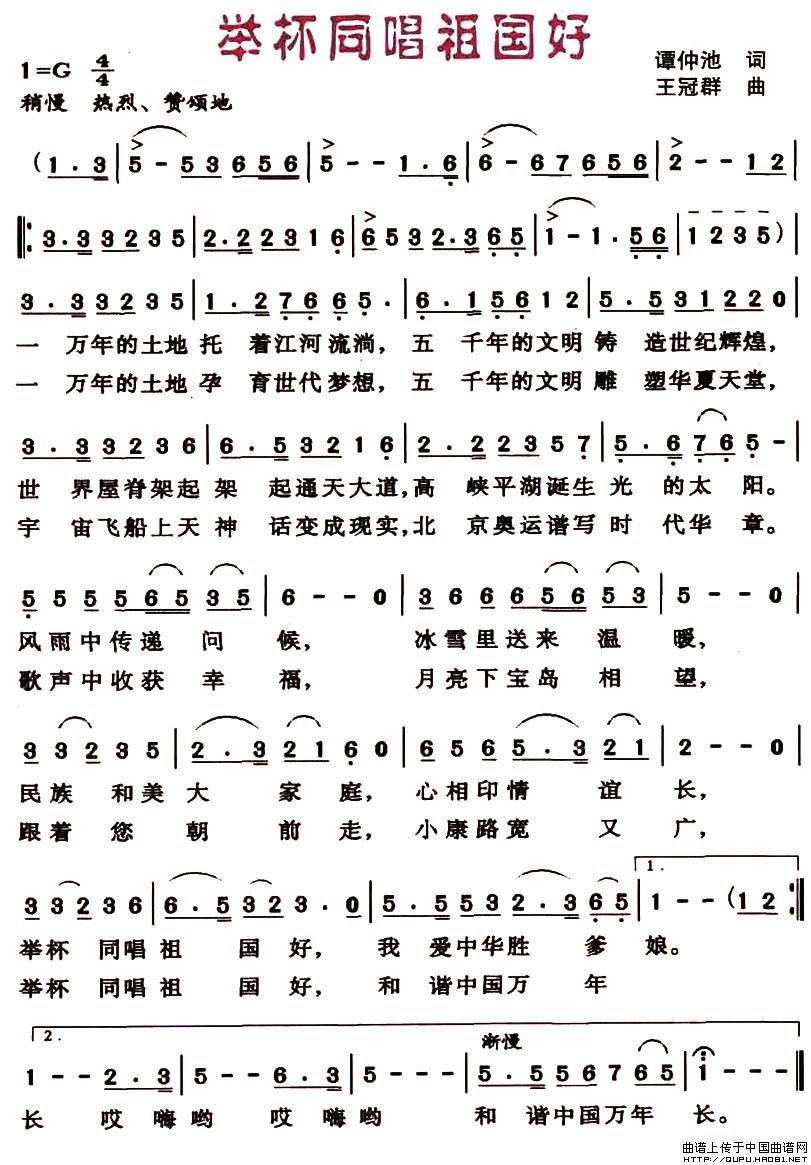 举杯同唱祖国好
1=G 4/4
谭仲池 词
稍慢 热烈、赞颂地
王冠群 曲
(1·3 | 5-53656 | 5--1·6 | 6-67656 | 2--12
3·33235 | 2·22316 | 6532·365 | 1-1·56 | 1235)
3·33235 | 1·27665· | 6·15612 | 5·531220
一 万年的土地 托 着江河流淌, 五 千年的文明 铸 造世纪辉煌,
一 万年的土地 孕 育世代梦想, 五 千年的文明 雕 塑华夏天堂,
3·33236 | 6·53216 | 2·22357 | 5·6765-
世 界屋脊架起 架 起通天大道,高 峡平湖诞生 光 的太 阳。
宇 宙飞船上天 神 话变成现实,北 京奥运谱写 时 代华 章。
55556535 | 6--0 | 36665653 | 5--0
风雨中传递 问 候, 冰雪里送来 温 暖,
歌声中收获 幸 福, 月亮下宝岛 相 望,
33235 | 2·32160 | 6565·321 | 2--0
民族 和美 大 家 庭, 心相印情 谊 长,
跟着 您 朝 前 走, 小康路宽 又 广,
1.
33236 | 6·5323·0 | 5·5532·365 | 1--(12
举杯 同唱 祖 国 好, 我 爱中华胜 爹 娘。
举杯 同唱 祖 国 好, 和 谐中国万 年
2.
渐慢
1--2·3 | 5--6·3 | 5--- | 5·556765 | 1---
长 哎 嗨哟 哎 嗨哟 和 谐中国万年 长。
曲谱上传于中国曲谱网
HTTP://QUPU.HAO81.NET